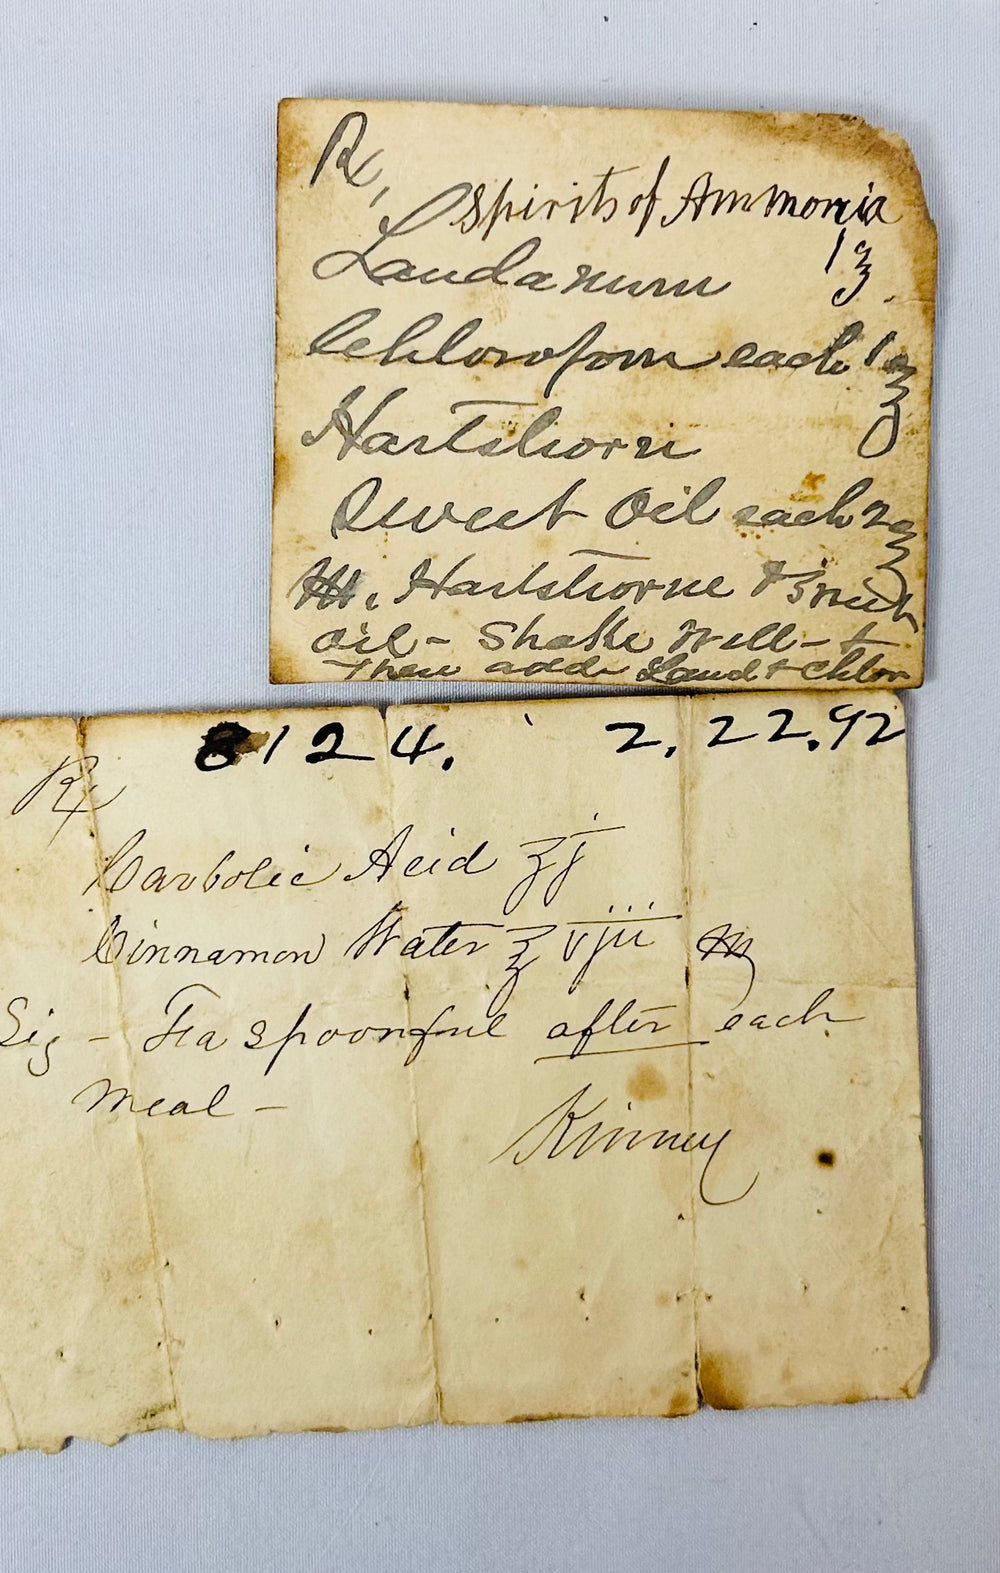 Rx,
Spirits of Ammonia
Laudanum 1ʒ.
Chloroform each 1ʒ
Hartshorn
Sweet Oil each 2ʒ
M, Hartshorne + Sweet
Oil - Shake Well - +
Then add Laud + Chlor
8124. 2.22.92
Rx
Carbolic Acid ʒj
Cinnamon Water ℥viii M
Sig - Teaspoonful after each
meal -
Kinney